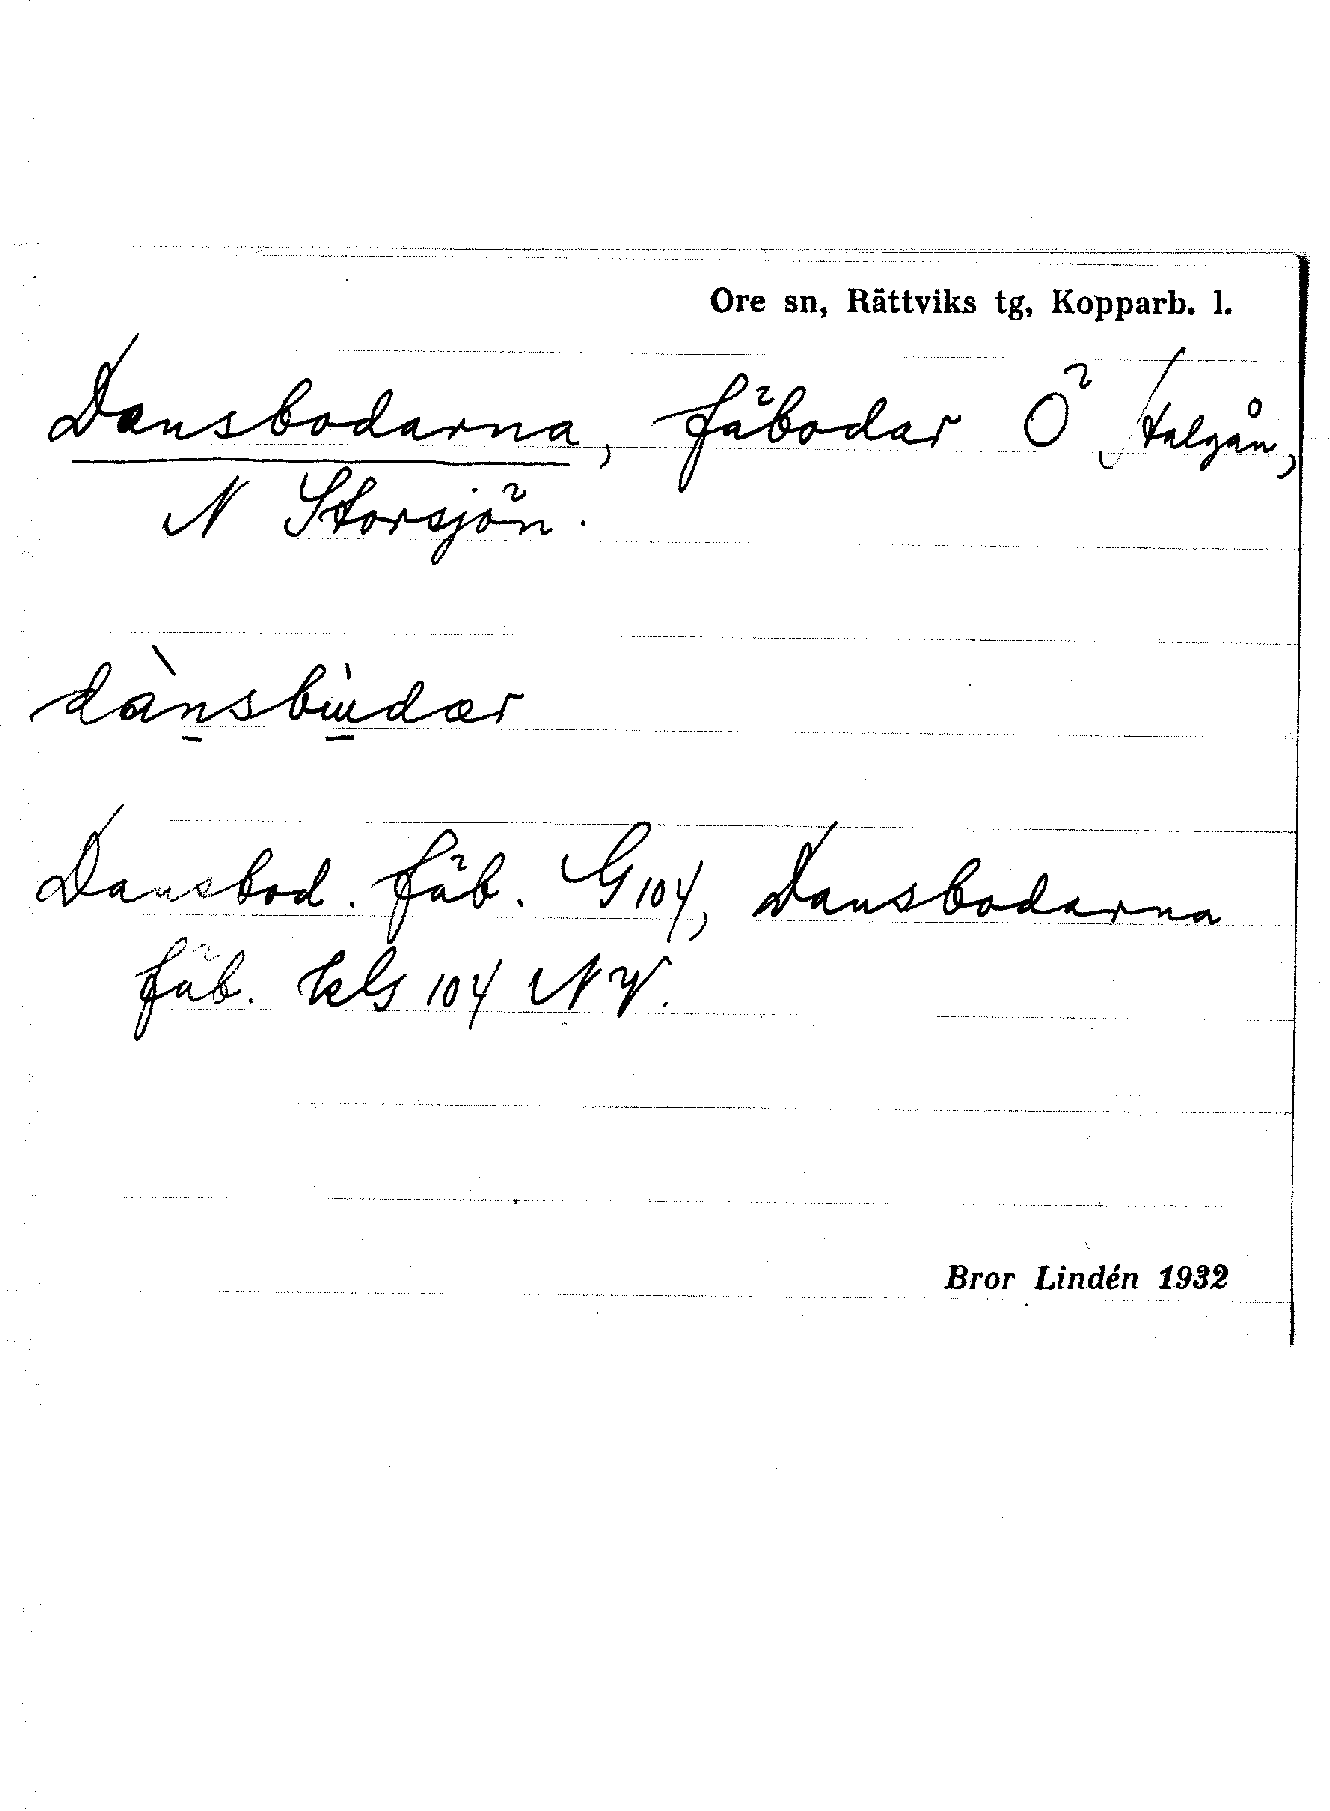 Ore sn, Rättviks tg, Kopparb. l.
Dansbodarna, fäbodar Ö
N Storsjön.
Dansbod. fäb. G 104, Dansbodarna
fäb. kG 104 NV.
Bror Lindén 1932